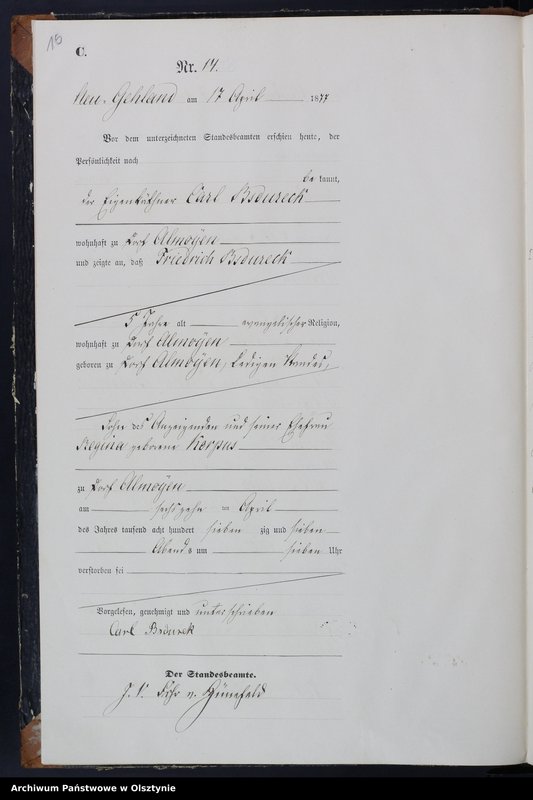 C.
Nr. 14.
Neu-Gehland am 17 April 1877
Vor dem unterzeichneten Standesbeamten erschien heute, der
Persönlichkeit nach
be kannt,
der Eigenkäthner Carl Bsdureck
wohnhaft zu Dorf Almoyen
und zeigte an, daß Friedrich Bsdureck
5 Jahre alt evangelischer Religion,
wohnhaft zu Dorf Almoyen
geboren zu Dorf Almoyen, ledigen Standes,
Sohn des Anzeigenden und seiner Ehefrau
Regina geborene Kerpus
zu Dorf Almoyen
am sechszehn ten April
des Jahres tausend acht hundert sieben zig und sieben
Abend s um sieben Uhr
verstorben sei
Vorgelesen, genehmigt und unterschrieben
Carl Bsdurek
Der Standesbeamte.
J. V. v. Hünefeld
Archiwum Państwowe w Olsztynie